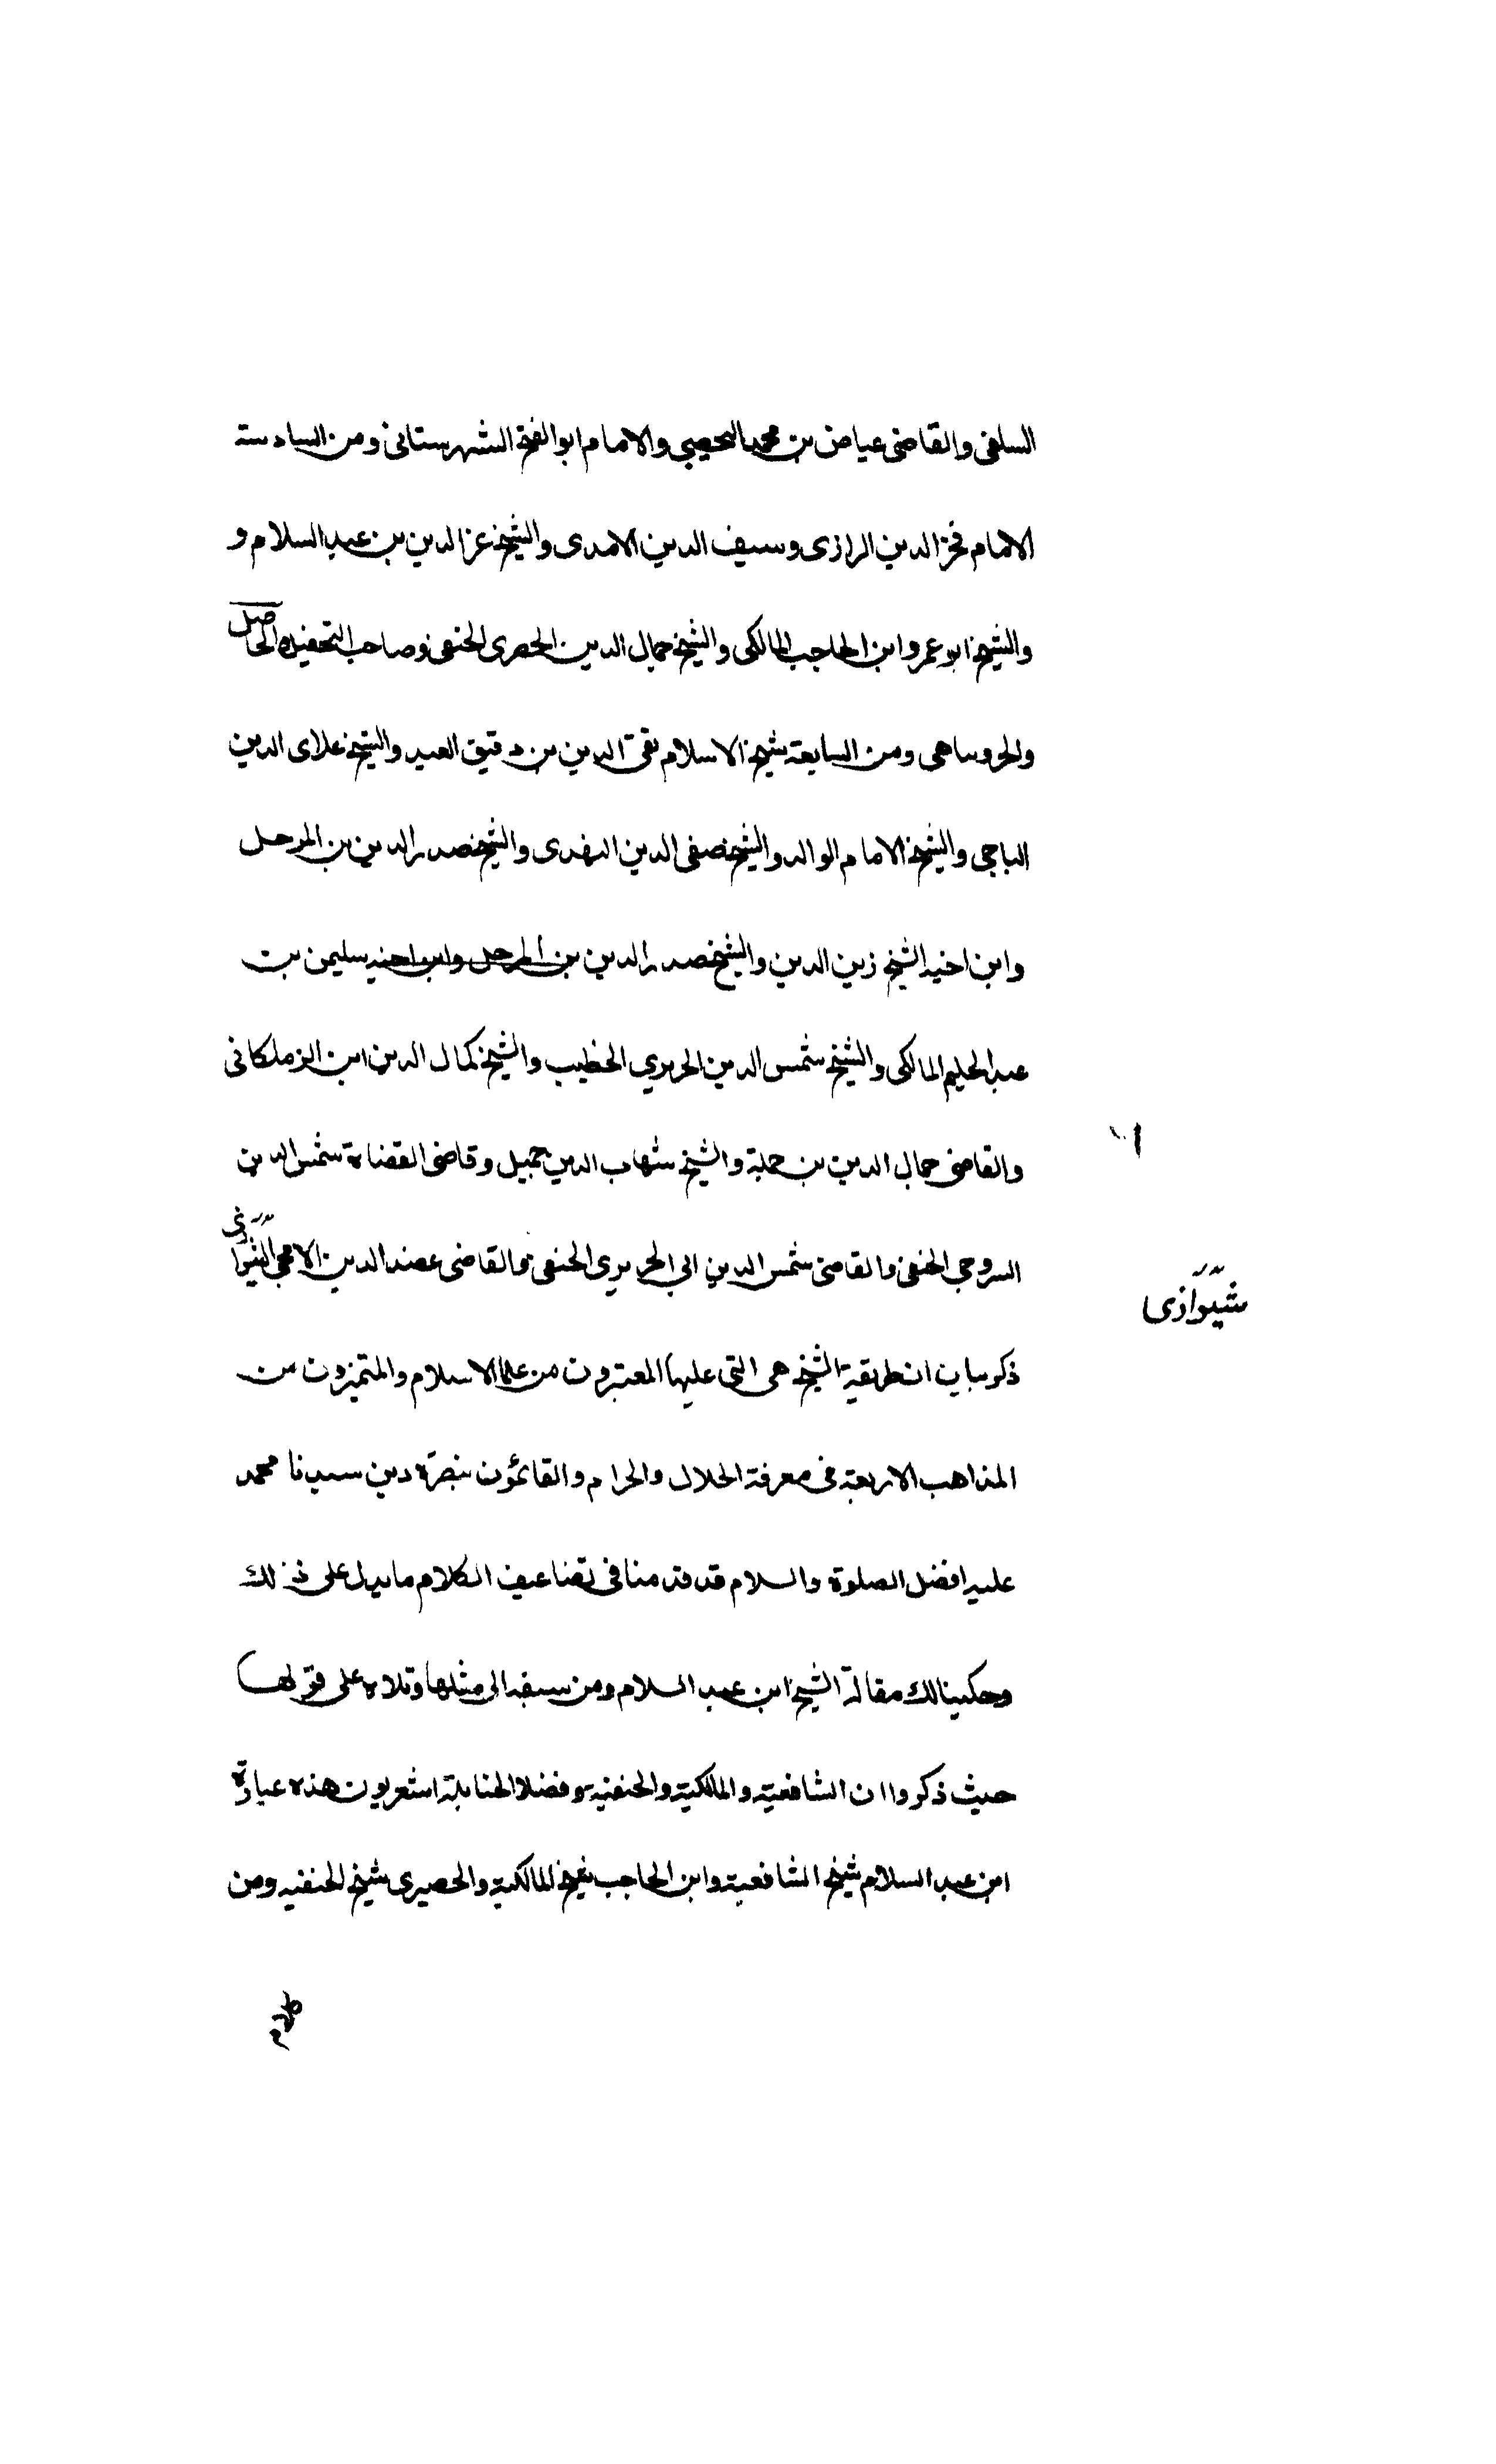 السلفى والقاضى عياض بن محمد اليحصبي والامام ابو الفتح الشهرستانى ومن السادسة
الامام فخر الدين الرازى وسيف الدين الامدى والشيخ عز الدين بن عبد السلام و
والشيخ ابو عمرو ابن الحاجب المالكى والشيخ جمال الدين الحصرى الحنفى وصاحب التحصيل والحاصل
والخروساهى ومن السابعة شيخ الاسلام تقى الدين بن دقيق العيد والشيخ علاى الدين
الباجى والشيخ الامام الوالد والشيخ صفى الدين الهندى والشيخ صدر الدين بن المرحل
وابن اخيه الشيخ زين الدين والشيخ صدر الدين بن المرحل وابن اخيه سليمن بن
عبد الحليم المالكى والشيخ شمس الدين الحريري الخطيب والشيخ كمال الدين ابن الزملكانى
والقاضى جمال الدين بن جملة والشيخ شهاب الدين جهبل وقاضى القضاة شمس الدين
السروجى الحنفى والقاضى شمس الدين ابى الحريرى الحنفى والقاضى عضد الدين الامجى الشيرازى
شيرازى
ذكر بيان ان طريقة الشيخ هى التى عليها المعتبرون من علما الاسلام والمتميزون من
المذاهب الاربعة فى معرفة الحلال والحرام والقائمون بنصرة دين سيدنا محمد
عليه افضل الصلوة والسلام قد قدمنا فى تضاعيف الكلام ما يدل على ذلك
وحكينا لك مقالة الشيخ ابن عبد السلام ومن سبقه الى مثلها وتلاه على قولها
حيث ذكروا ان الشافعية والمالكية والحنفية وفضلا الحنابلة اشعريون هذه عبارة
ابن عبد السلام شيخ الشافعية وابن الحاجب شيخ المالكية والحصيرى شيخ الحنفيه ومن
كلام